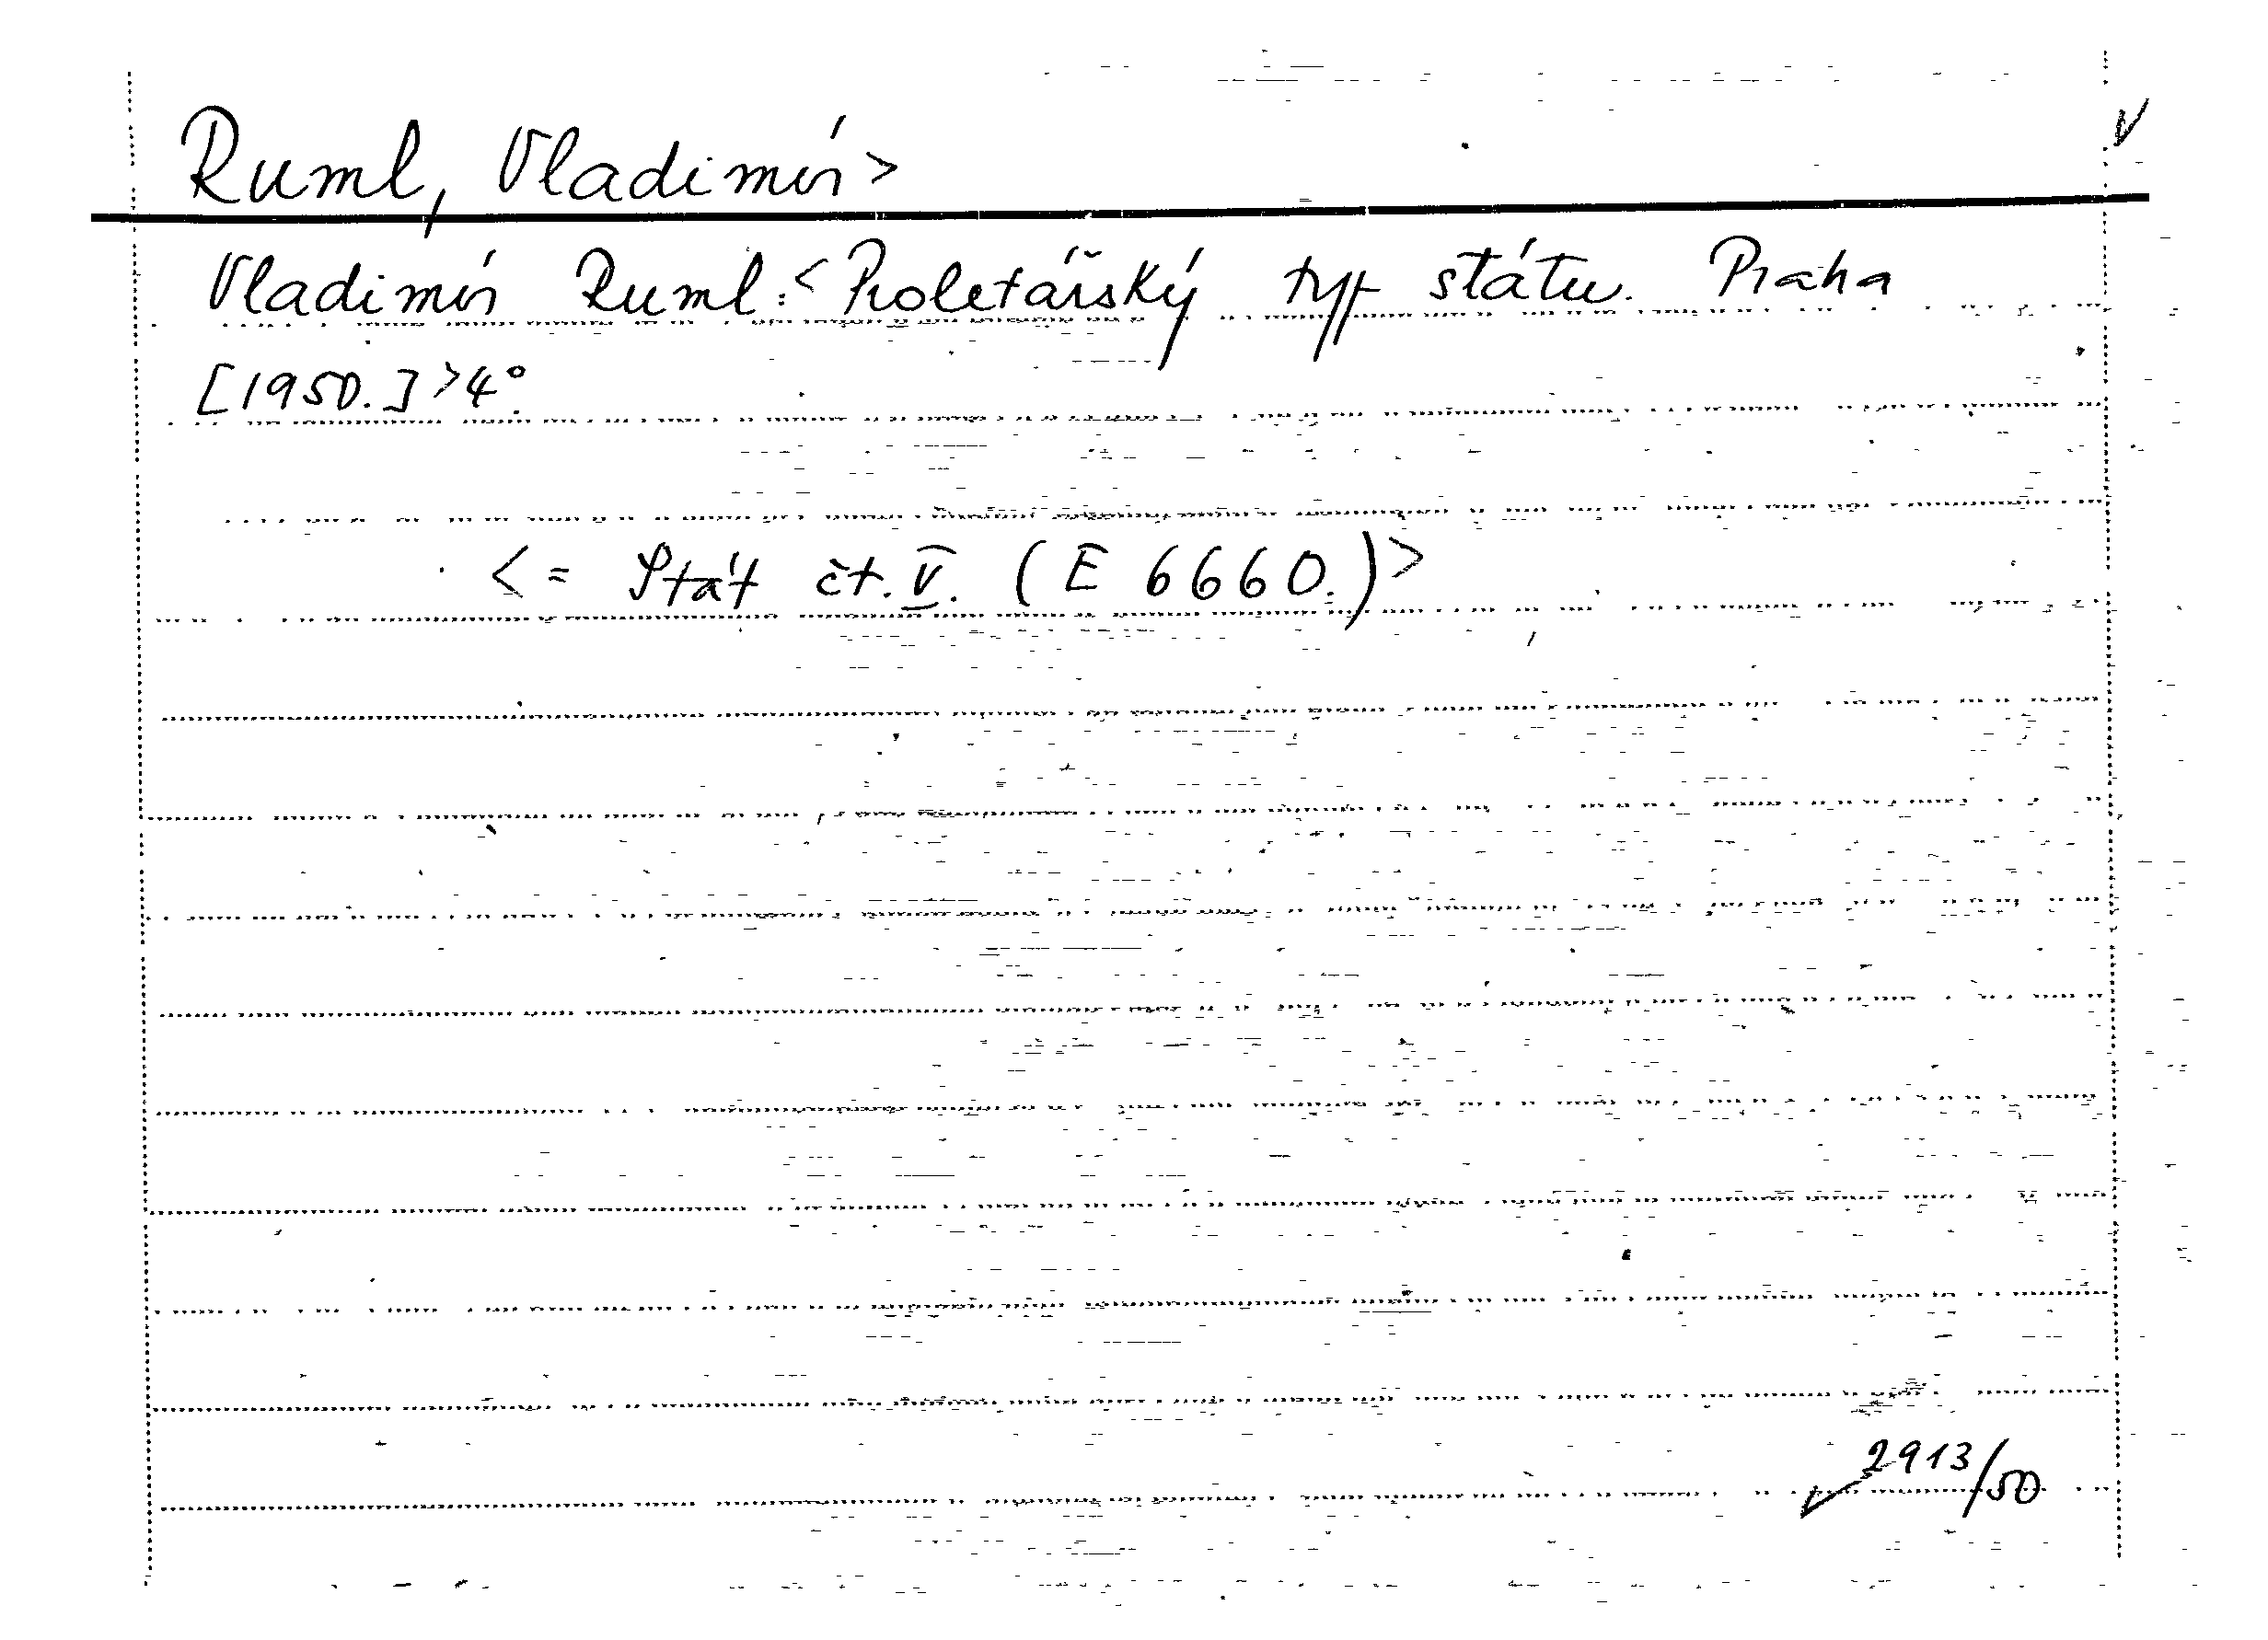 Ruml, Vladimír>
Vladimír Ruml:< Proletářský typ státu. Praha
[1950.]>4°.
<= Stát čt. V. (E 6660.)>
2913/50